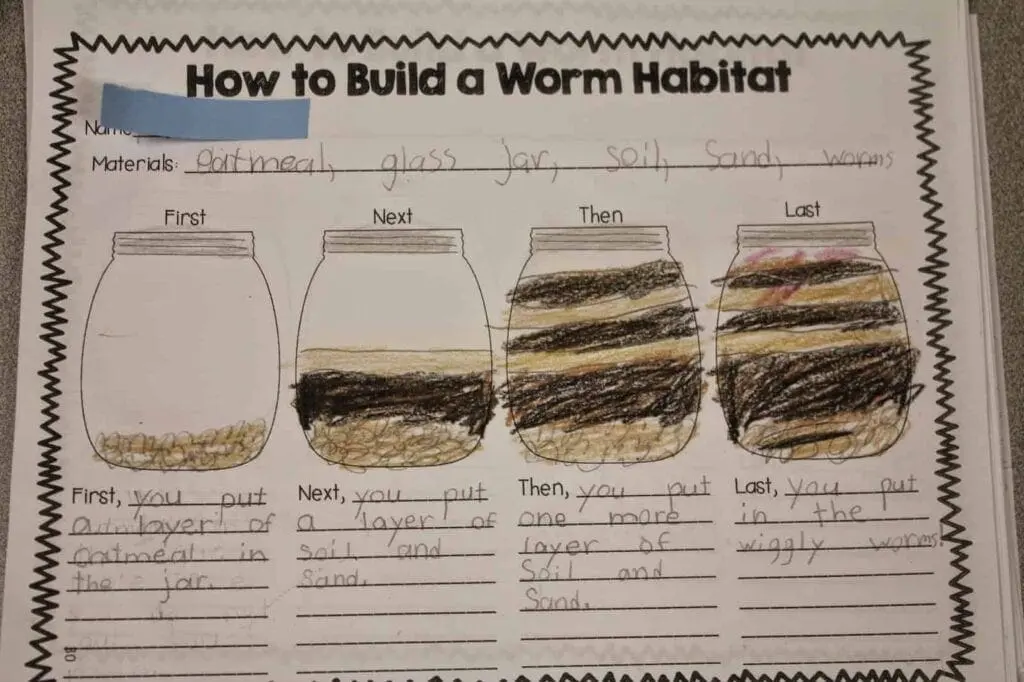 How to Build a Worm Habitat
Name
Materials: oatmeal, glass jar, soil, sand, worms
First
Next
Then
Last
First, you put
a layer of
oatmeal in
the jar.
Next, you put
a layer of
soil and
sand.
Then, you put
one more
layer of
Soil and
Sand.
Last, you put
in the
wiggly worms.
30